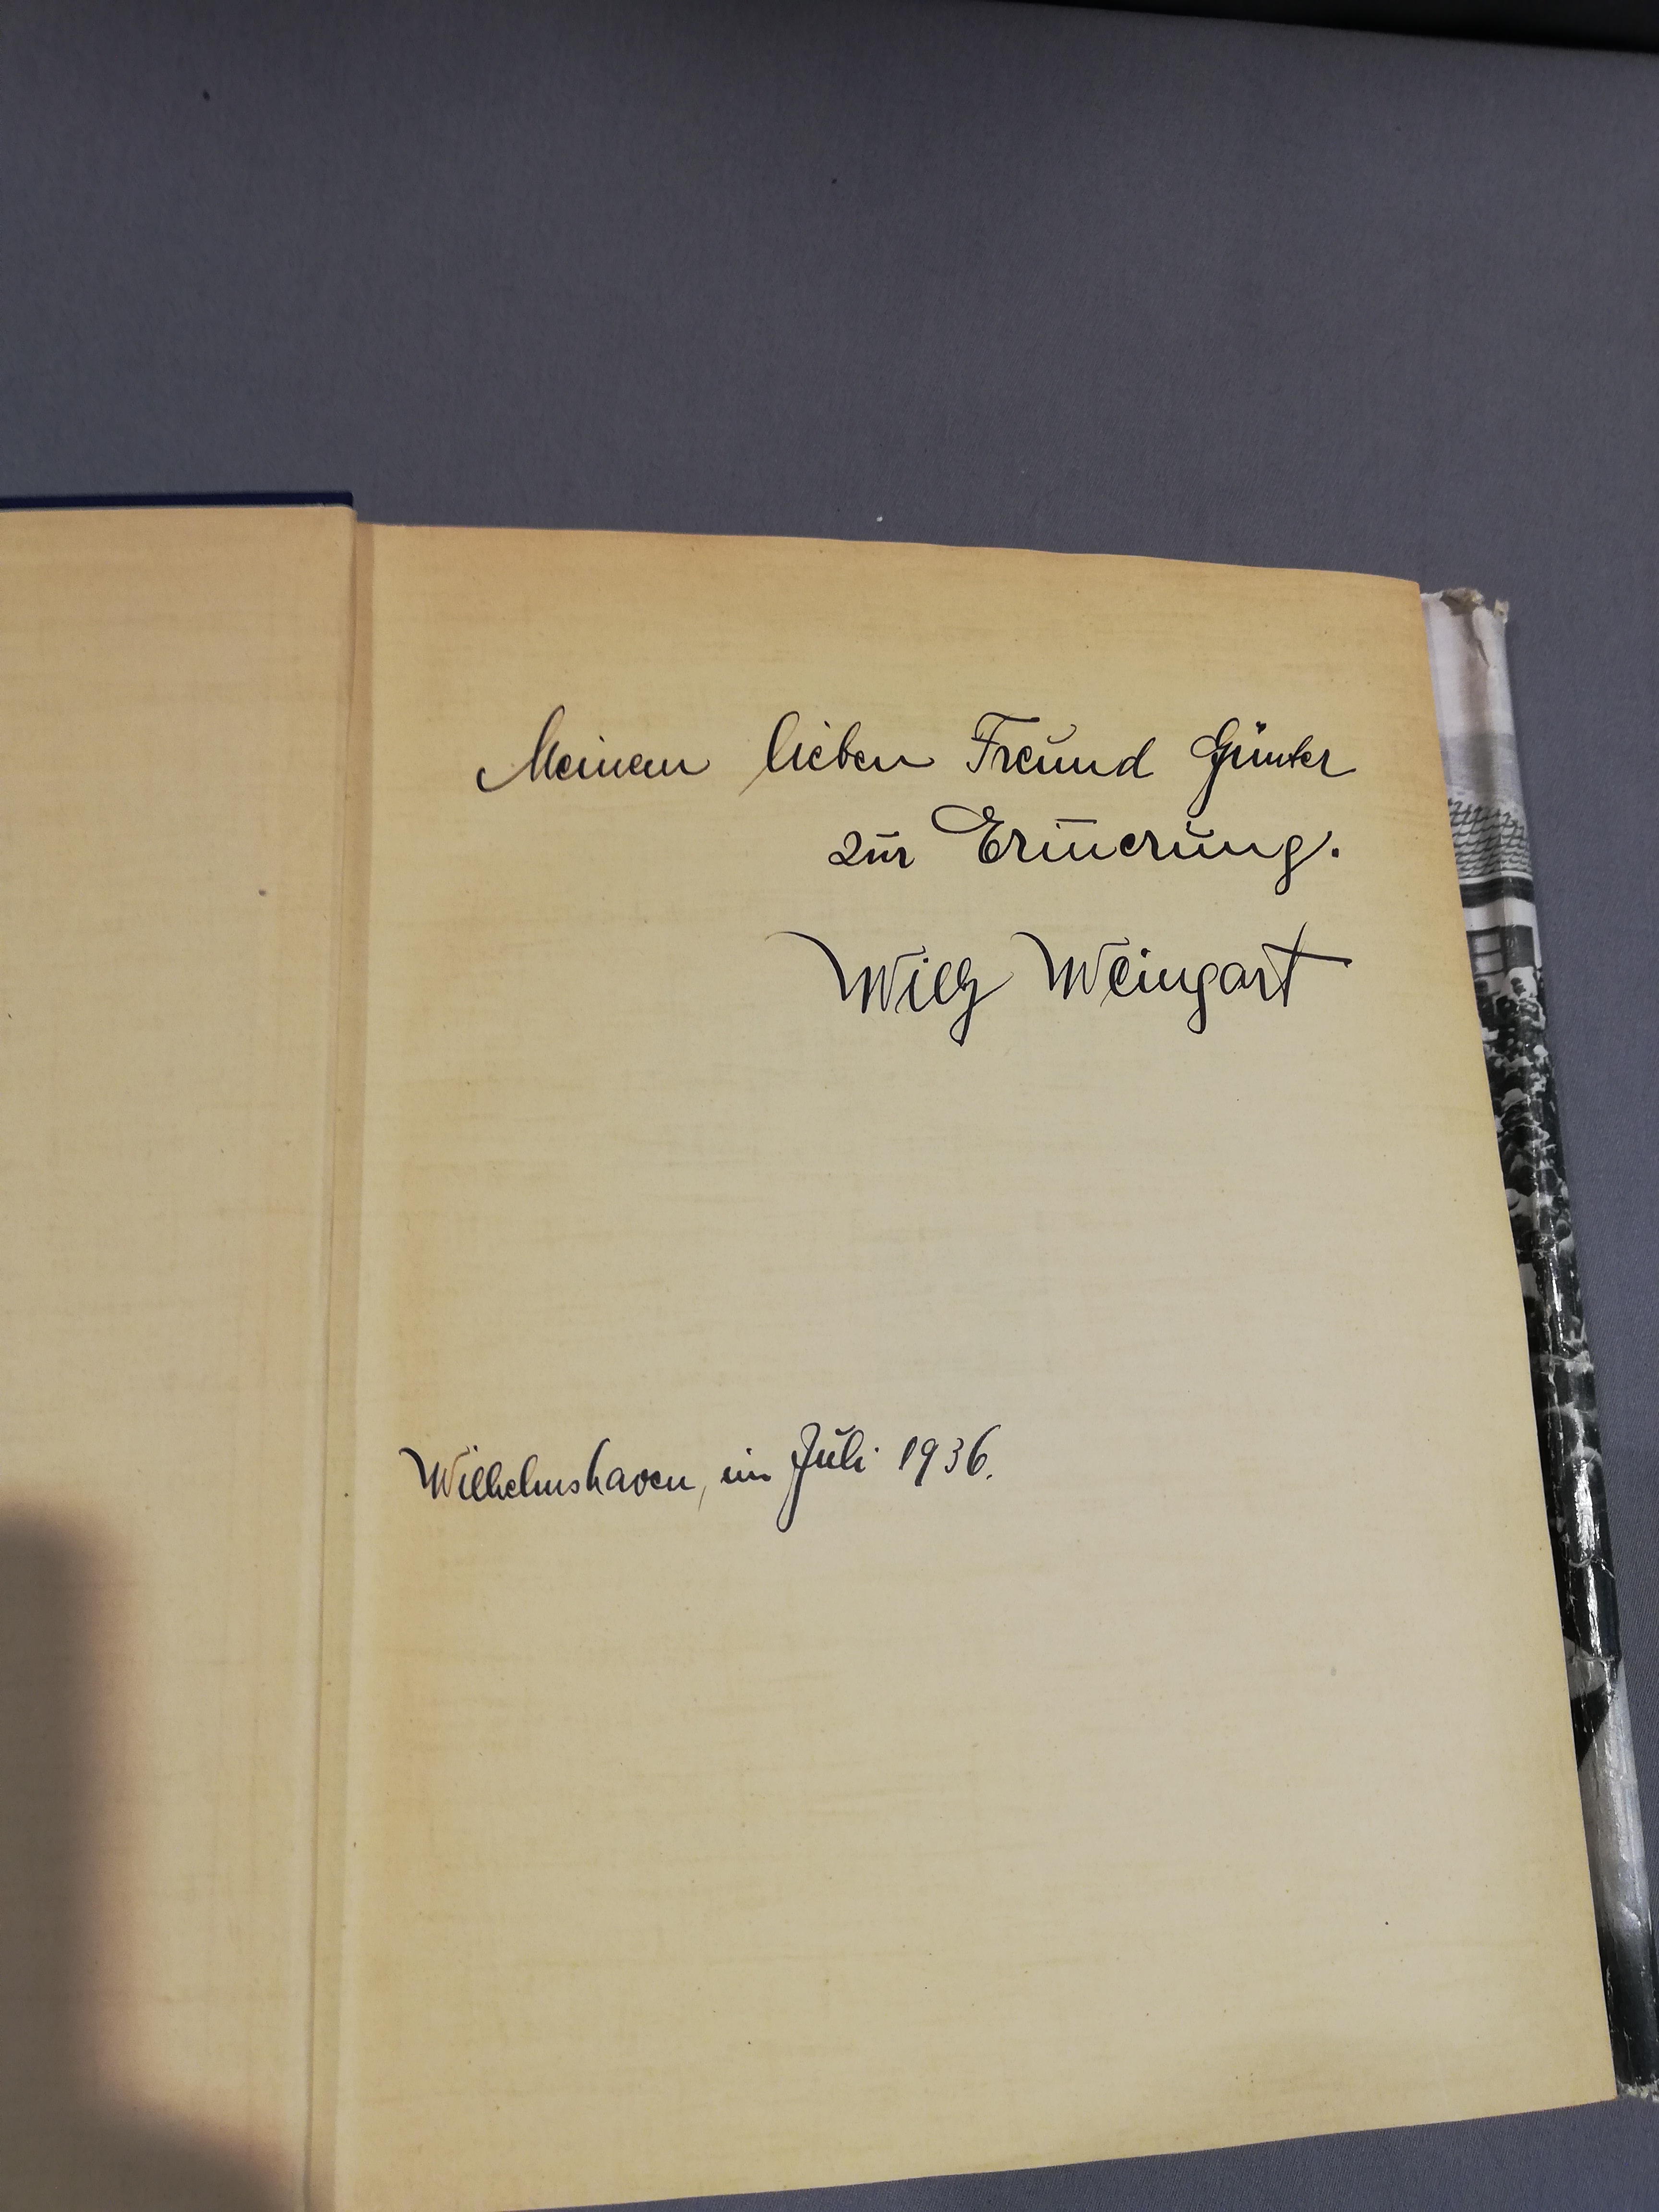 Meinem lieben Freund Günter
zur Erin̄erung.
Willy Weingart
Wilhelmshaven, im Juli 1936.